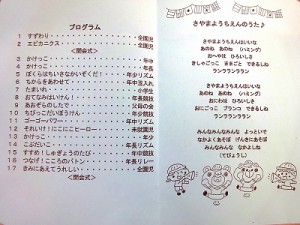 プログラム
1 すずわり 全園児
2 エビカニクス 全園児
<開会式>
3 かけっこ 年中
4 かけっこ 年長
5 ぼくらはちいさなかいぞくだ! 年少リズム
6 ちからをあわせて 年中玉入れ
7 たまいれ 小学生
8 おてなみはいけん 年長競技
9 あおぞらのしたで 父母の会
10 ちびっこだいぼうけん 年少競技
11 ゴーゴーパワー 年中リズム
12 それいけ!にこにこヒーロー 未就園児
13 かけっこ 年少
14 こぶだいこ 年長リズム
15 すすめ!しゅぎょうのたび 年中競技
16 つなげ!こころのバトン 年長リレー
17 きみにあえてうれしい 全園児
<閉会式>
さやまようちえんのうた♪
さやまようちえんはいいな
あのね あのね (ハミング)
おへやは ひろいし
きしゃごっこ ままごと できるしね
ランランランラン
さやまようちえんはいいな
あのね あのね (ハミング)
おにわは ひろいしさ
おにごっこ ブランコ できるしね
ランランランラン
みんなみんなみんな よっといで
なかよくあそぼ げんきにあそぼ
みんなみんな なかよしね
(てびょうし)